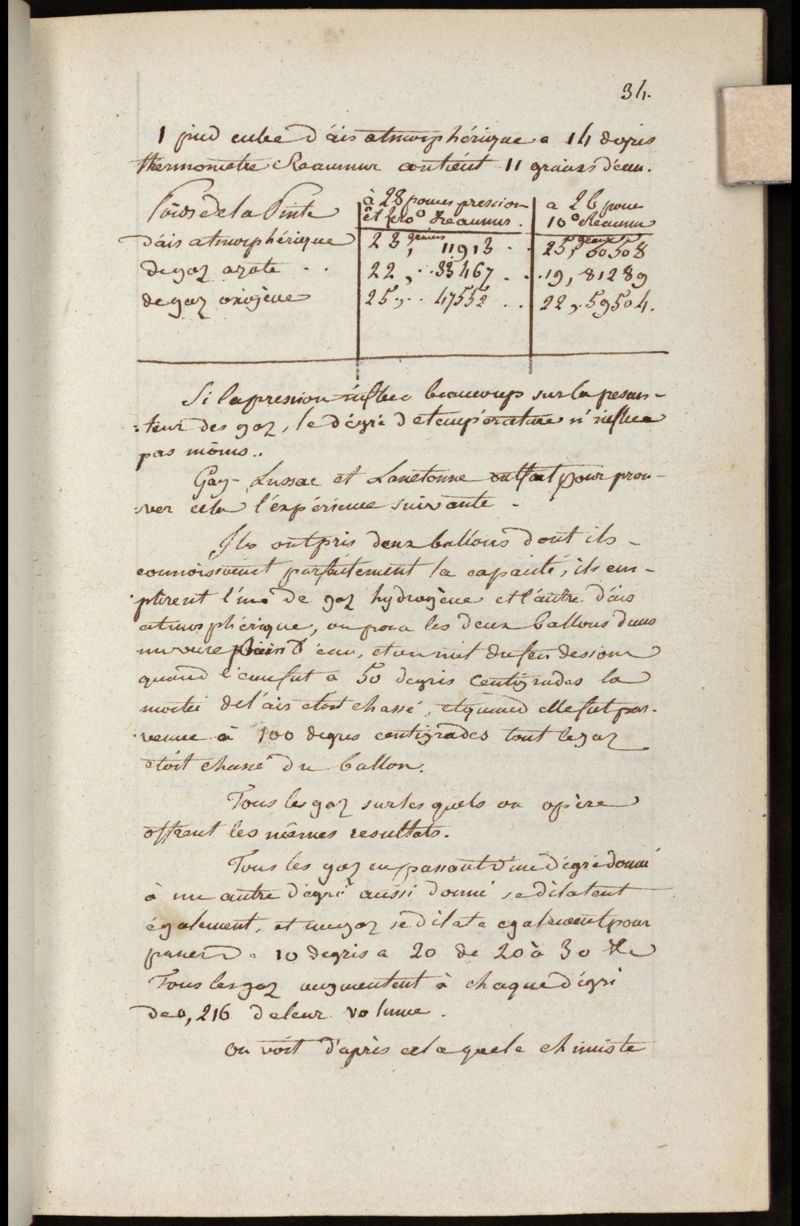 34.
1 pied cube d'air atmosphérique a 14 degrés
thermometre Reaumur contient 11 grains d'eau.
Poids de la Pinte | à 28 pouces pression et 10° Reaumur. | a 26 pouce 10° Reaumur
d'air atmosphérique | 23, grains 11913 .. | 25, grains 50508
de gaz azote .. | 22, .. 33467 .. | 19, 81289
de gaz oxigène | 25, .. 47552 .. | 22, 59504.
Si la pression influe beaucoup sur la pesan-
-teur des gaz, le dégré de température n'influe
pas moins..
Gay-Lussac et ont fait pour prou-
-ver cela l'expérience suivante.
Ils ont pris deux ballons dont ils
connoissoient parfaitement la capacité, ils em-
-plirent l'un de gaz hydrogène et l'autre d'air
atmosphérique, on posa les deux ballons dans
un vase plein d'eau, et on mit du feu dessous
quand l'eau fut a 50 degrés centigrades la
moitié de l'air etoit chassé, et quand elle fut par-
-venue à 100 degrés centigrades tout le gaz
étoit chassé du ballon.
Tous les gaz sur les quels on opère
offrent les mêmes resultats.
Tous les gaz en passant d'un dégré donné
à un autre dégré aussi donné se dilatent
également, et un gaz se dilate egalement pour
passer de 10 degrés a 20 de 20 à 30 &c
Tous les gaz augmentent à chaque dégré
de 0,216 de leur volume.
On voit d'après cela que le chimiste